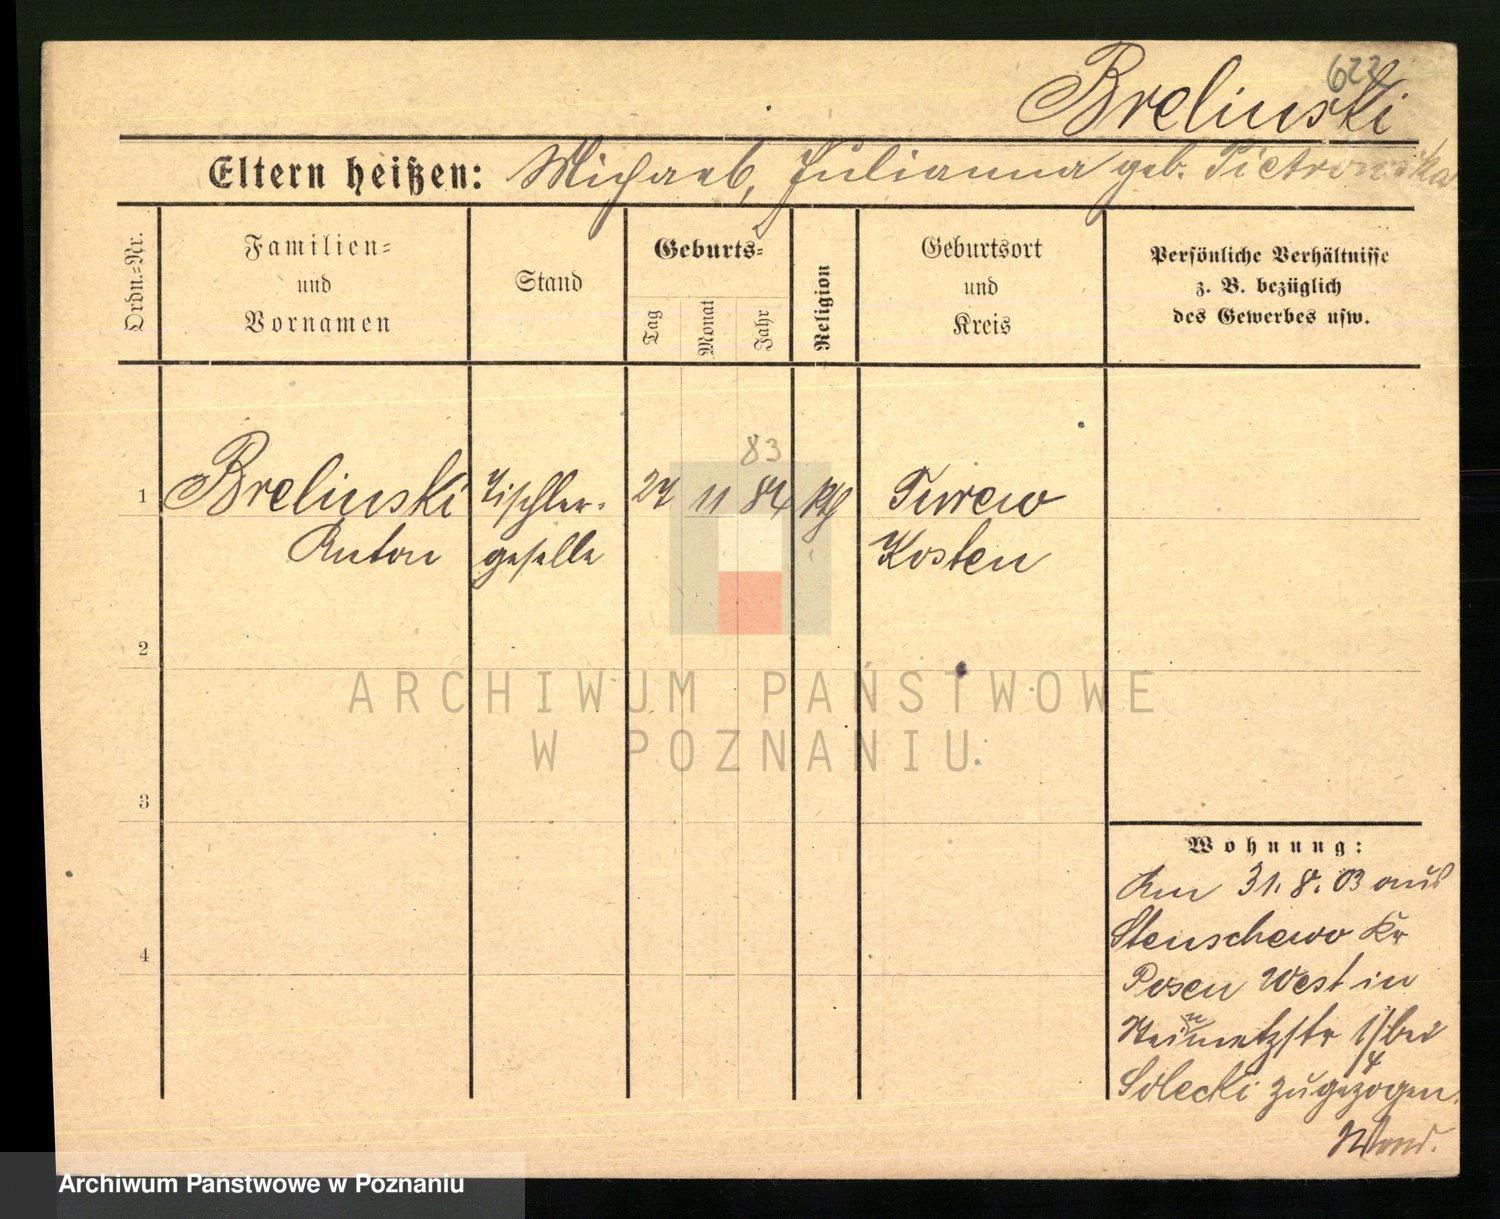 622
Brelinski
Eltern heißen: Michael, Julianna geb. Pietrowska
Ordn.-Nr.
Familien-
und
Vornamen
Stand
Geburts-
Tag
Monat
Jahr
Religion
Geburtsort
und
Kreis
Persönliche Verhältnisse
z. B. bezüglich
des Gewerbes usw.
83
1 Brelinski Tischler- 27 11 84 kth Turew
Anton geselle Kosten
2
ARCHIWUM PAŃSTWOWE
W POZNANIU
3
4
Wohnung:
Am 31.8.03 aus
Stenschewo Kr
Posen West in
1/4 bei
Solecki zugezogen.
Archiwum Państwowe w Poznaniu